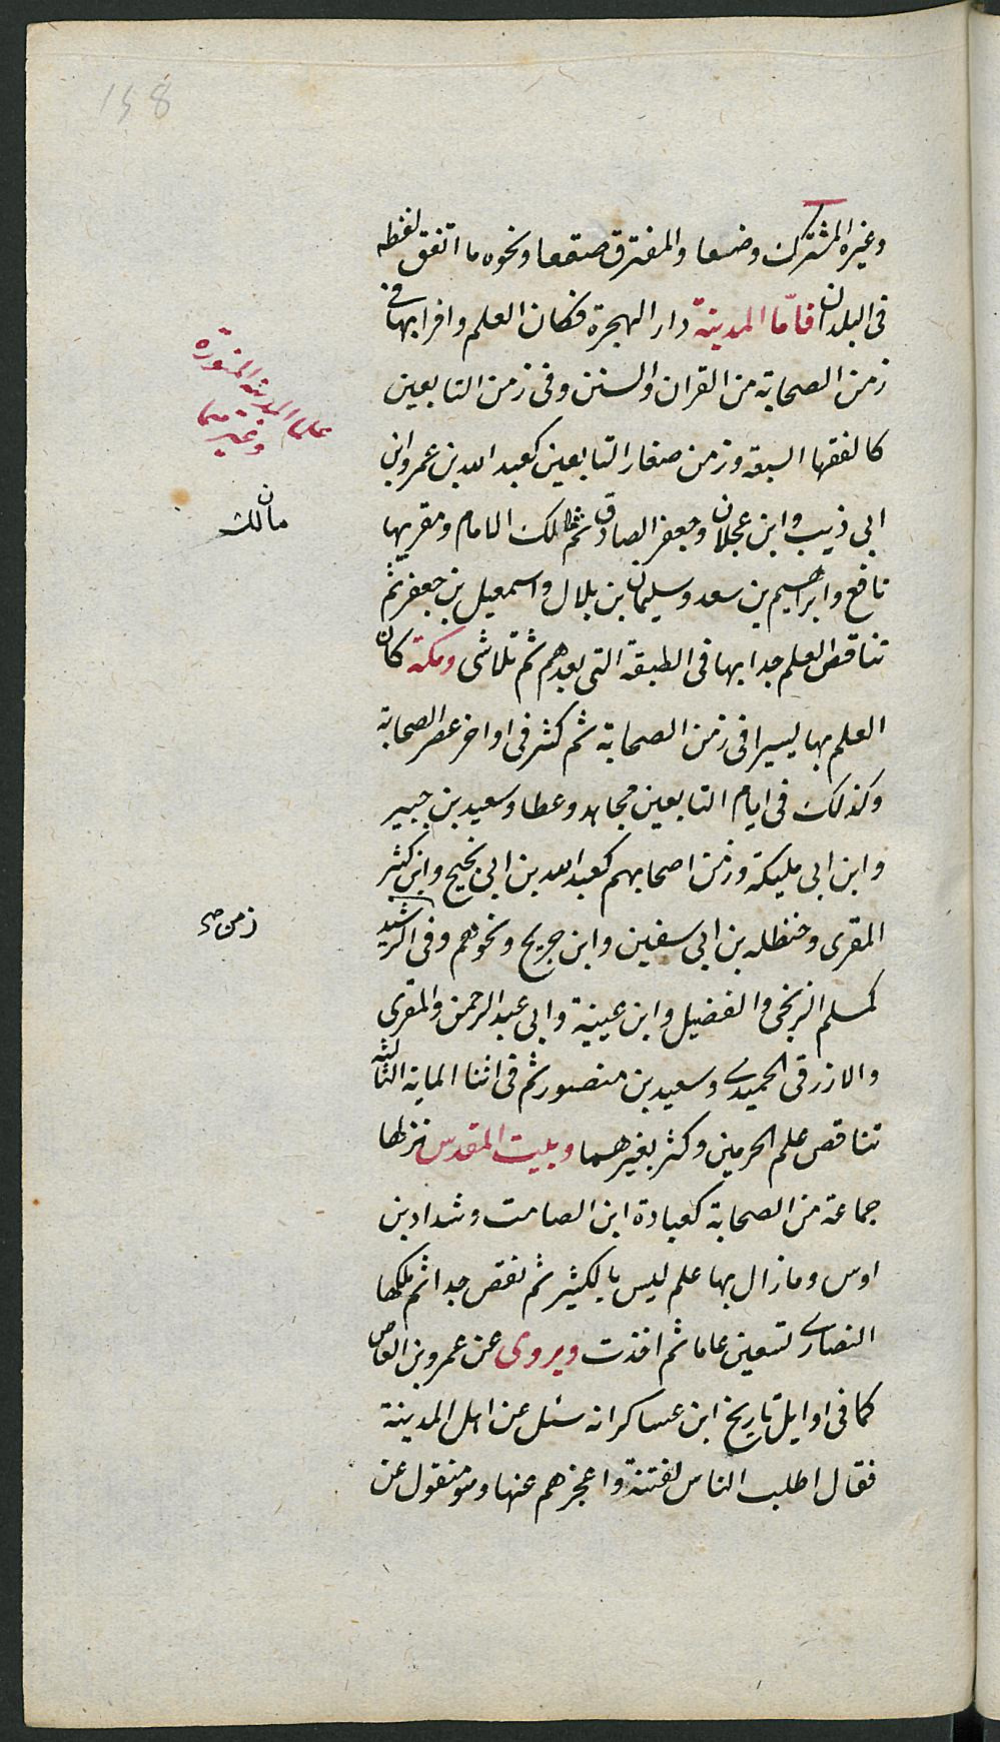 158
وغيره المشترك وضعا والمفترق صقعا ونحوه ما اتفق لفظه
فى البلدان فامّا المدينة دار الهجرة فكان العلم وافرا بها فى
زمن الصحابة من القران والسنن وفى زمن التابعين
علما المدينة المنورة
وغيرهما
كالفقها السبعة وزمن صغار التابعين كعبد الله بن عمر وابن
ابى ذيب وابن عجلان وجعفر الصادق ثم مالك الامام ومقريها
مالك
نافع وابراهيم بن سعد وسليمان بن بلال واسمعيل بن جعفر ثم
تناقص العلم جدا بها فى الطبقة التى بعدهم ثم تلاشى ومكة كان
العلم بها يسيرا فى زمن الصحابة ثم كثر فى اواخر عصر الصحابة
وكذلك فى ايام التابعين مجاهد وعطا وسعيد بن جبير
وابن ابى مليكة وزمن اصحابهم كعبد الله بن ابى نجيح وابن كثير
المقرى وحنظله بن ابى سفين وابن جريج ونحوهم وفى الرشيد
زمن صح
كمسلم الزنجى والفضيل وابن عيينة وابى عبد الرحمن والمقرى
والازرقى الحميدى وسعيد بن منصور ثم فى اثنا الماية الثالثه
تناقص علم الحرمين وكثر بغيرهما وبيت المقدس نزلها
جماعة من الصحابة كعبادة ابن الصامت وشداد بن
اوس ومازال بها علم ليس بالكثير ثم نقص جدا ثم ملكها
النصارى تسعين عاما ثم اخذت ويروى عن عمرو بن العاص
كما فى اوايل تاريخ ابن عساكر انه سئل عن اهل المدينة
فقال اطلب الناس لفتنة واعجزهم عنها وهو منقول عن